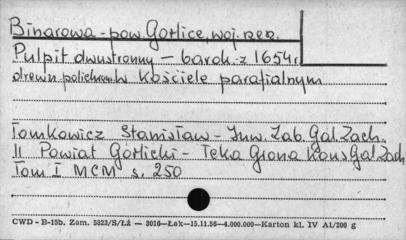 Binarowa - pow. Gorlice, woj. rzesz.
Pulpit dwustronny - barok. z 1654r.
drewn. polichrom. w kościele parafialnym
Tomkowicz Stanisław - Inw. Zab. Gal. Zach.
II Powiat Gorlicki - Teka Grona Kons Gal. Zach
Tom I MCM s. 250
CWD - B-15b. Zam. 5323/S/Łż — 3016—Łok—15.11.56—4.000.000—Karton kl. IV A1/200 g